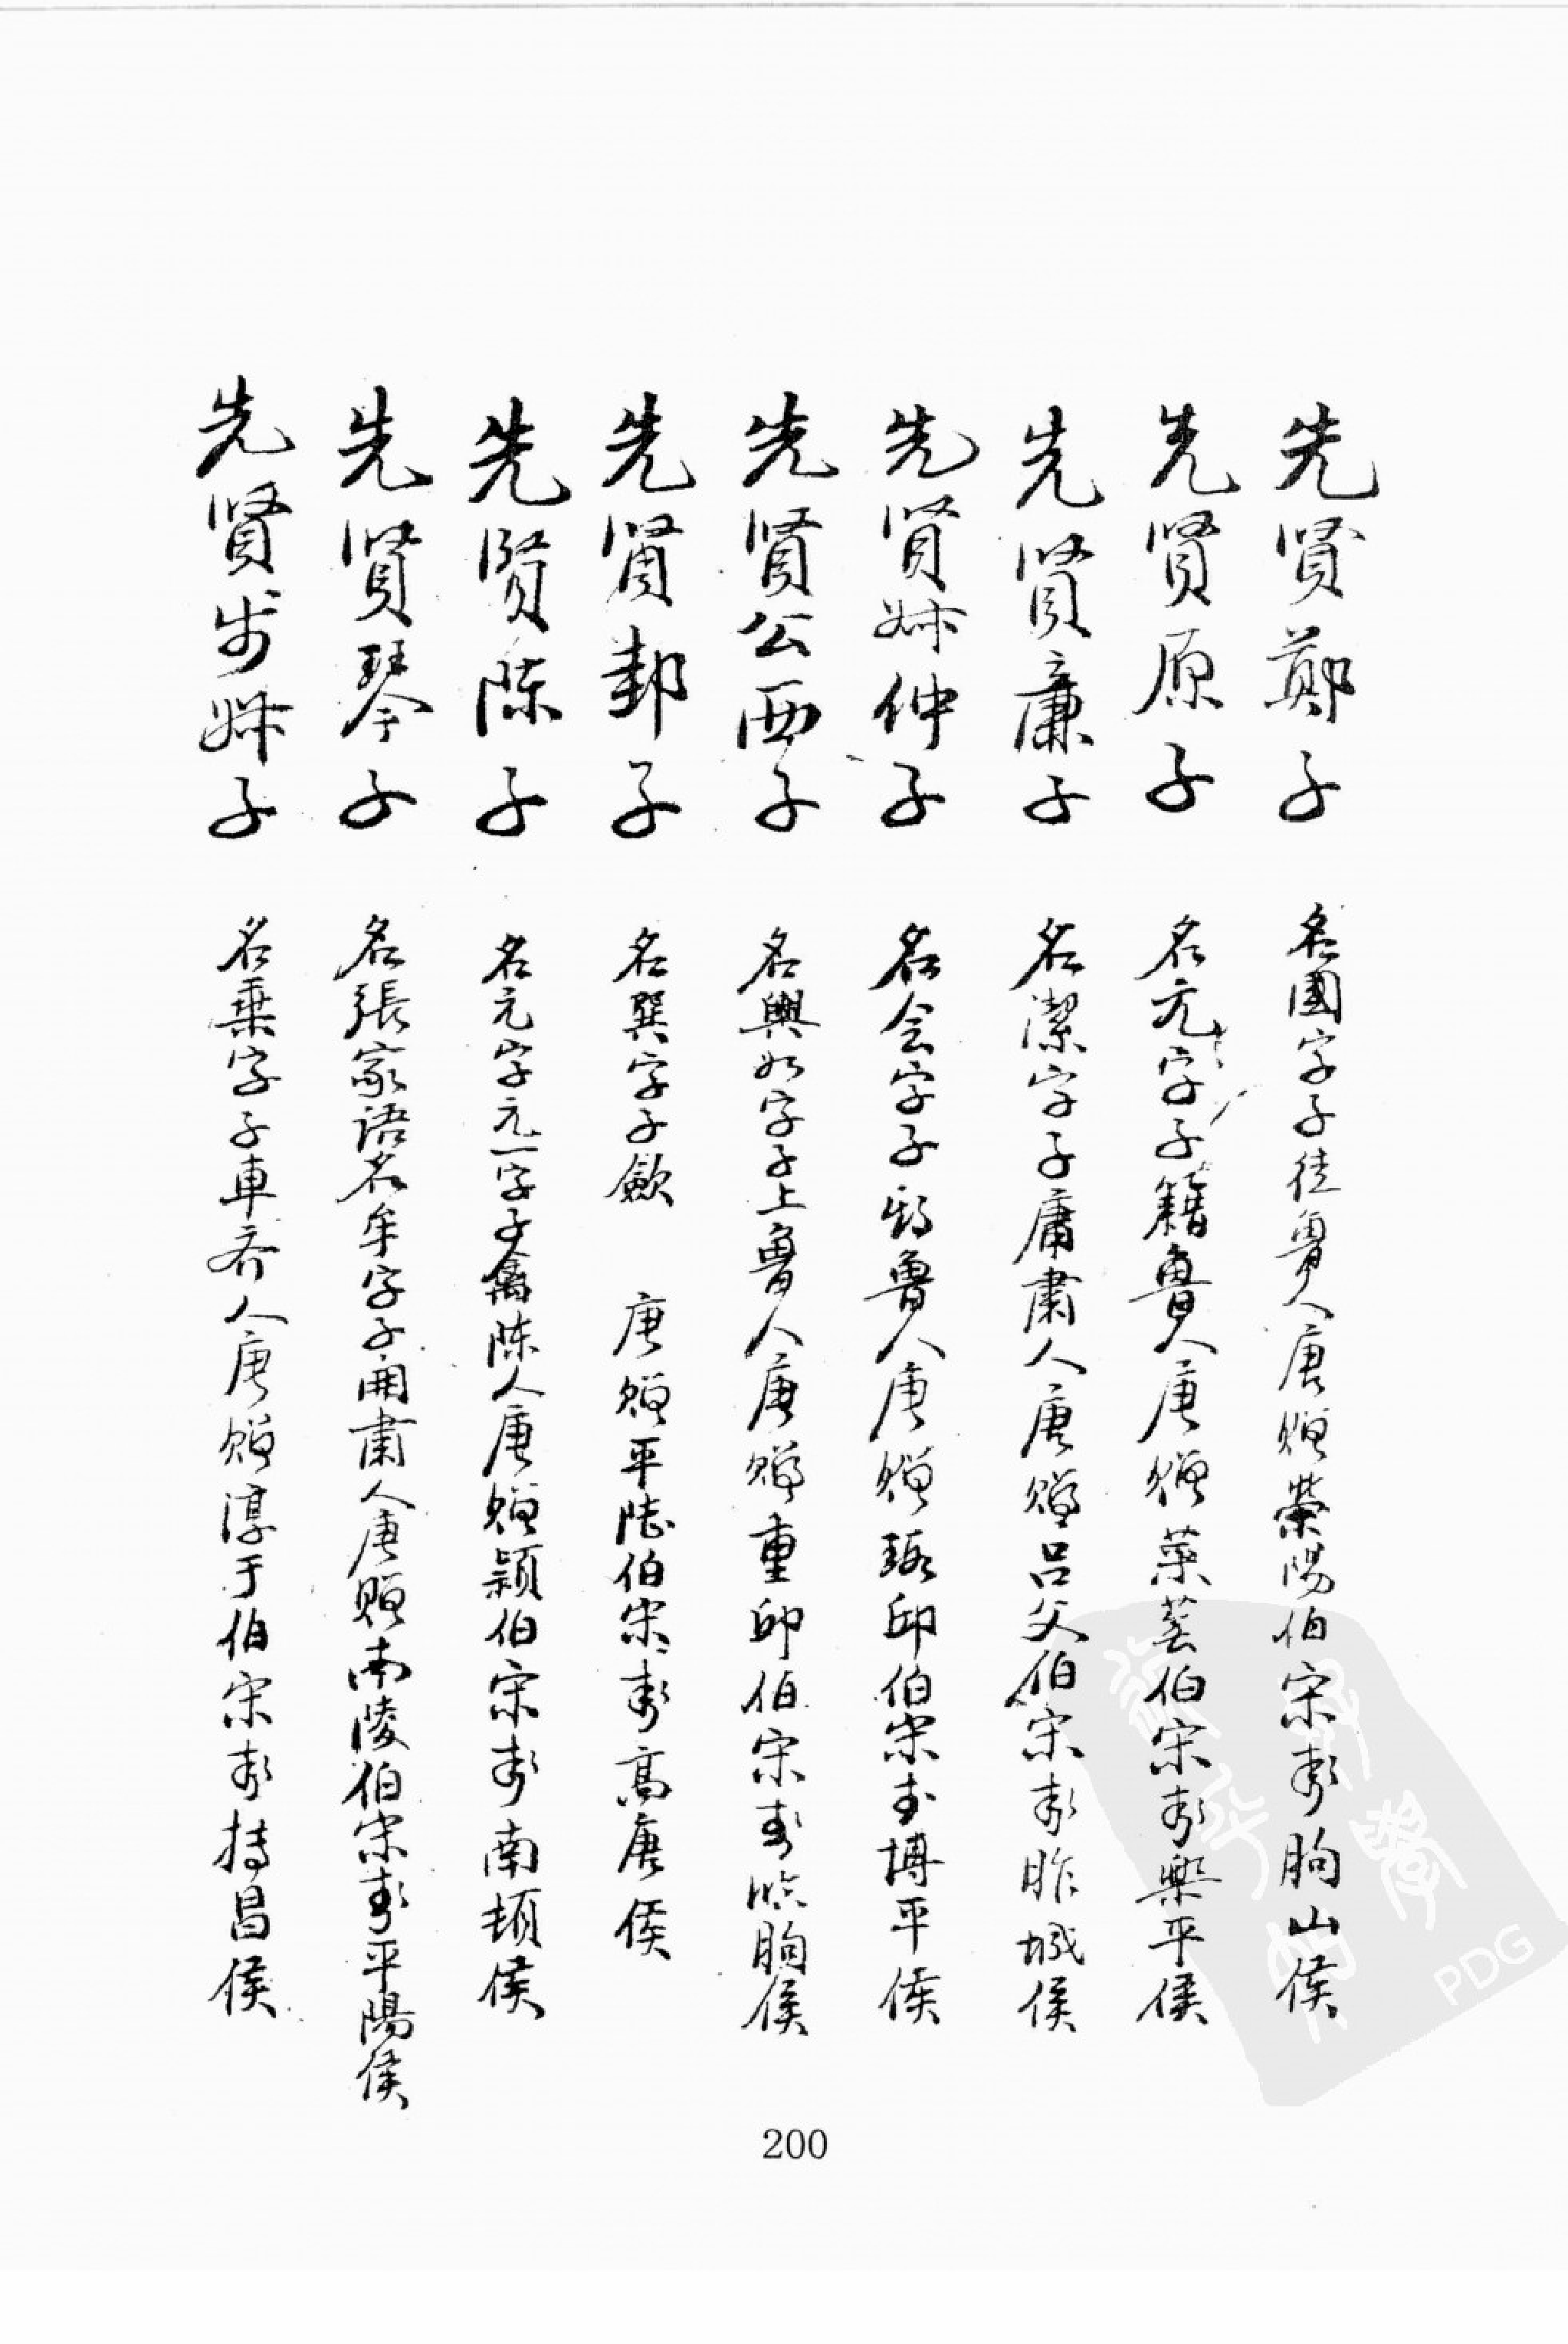 先贤鄭子 名國字子徒魯人唐贈榮陽伯宋封朐山侯
先贤原子 名亢字子籍魯人唐贈萊蕪伯宋封樂平侯
先贤廉子 名潔字子庸肅人唐贈吕父伯宋封胙城侯
先贤叔仲子 名会字子期魯人唐贈瑕邱伯宋封博平侯
先贤公西子 名輿如字子上魯人唐贈重邱伯宋封临朐侯
先贤邽子 名巽字子歛 唐贈平陆伯宋封高唐侯
先贤陈子 名亢字亢一字子禽陈人唐贈颖伯宋封南顿侯
先贤琴子 名張家语名牢字子開肅人唐贈南陵伯宋封平陽侯
先贤步叔子 名乗字子車齐人唐贈淳于伯宋封博昌侯
200
PDG